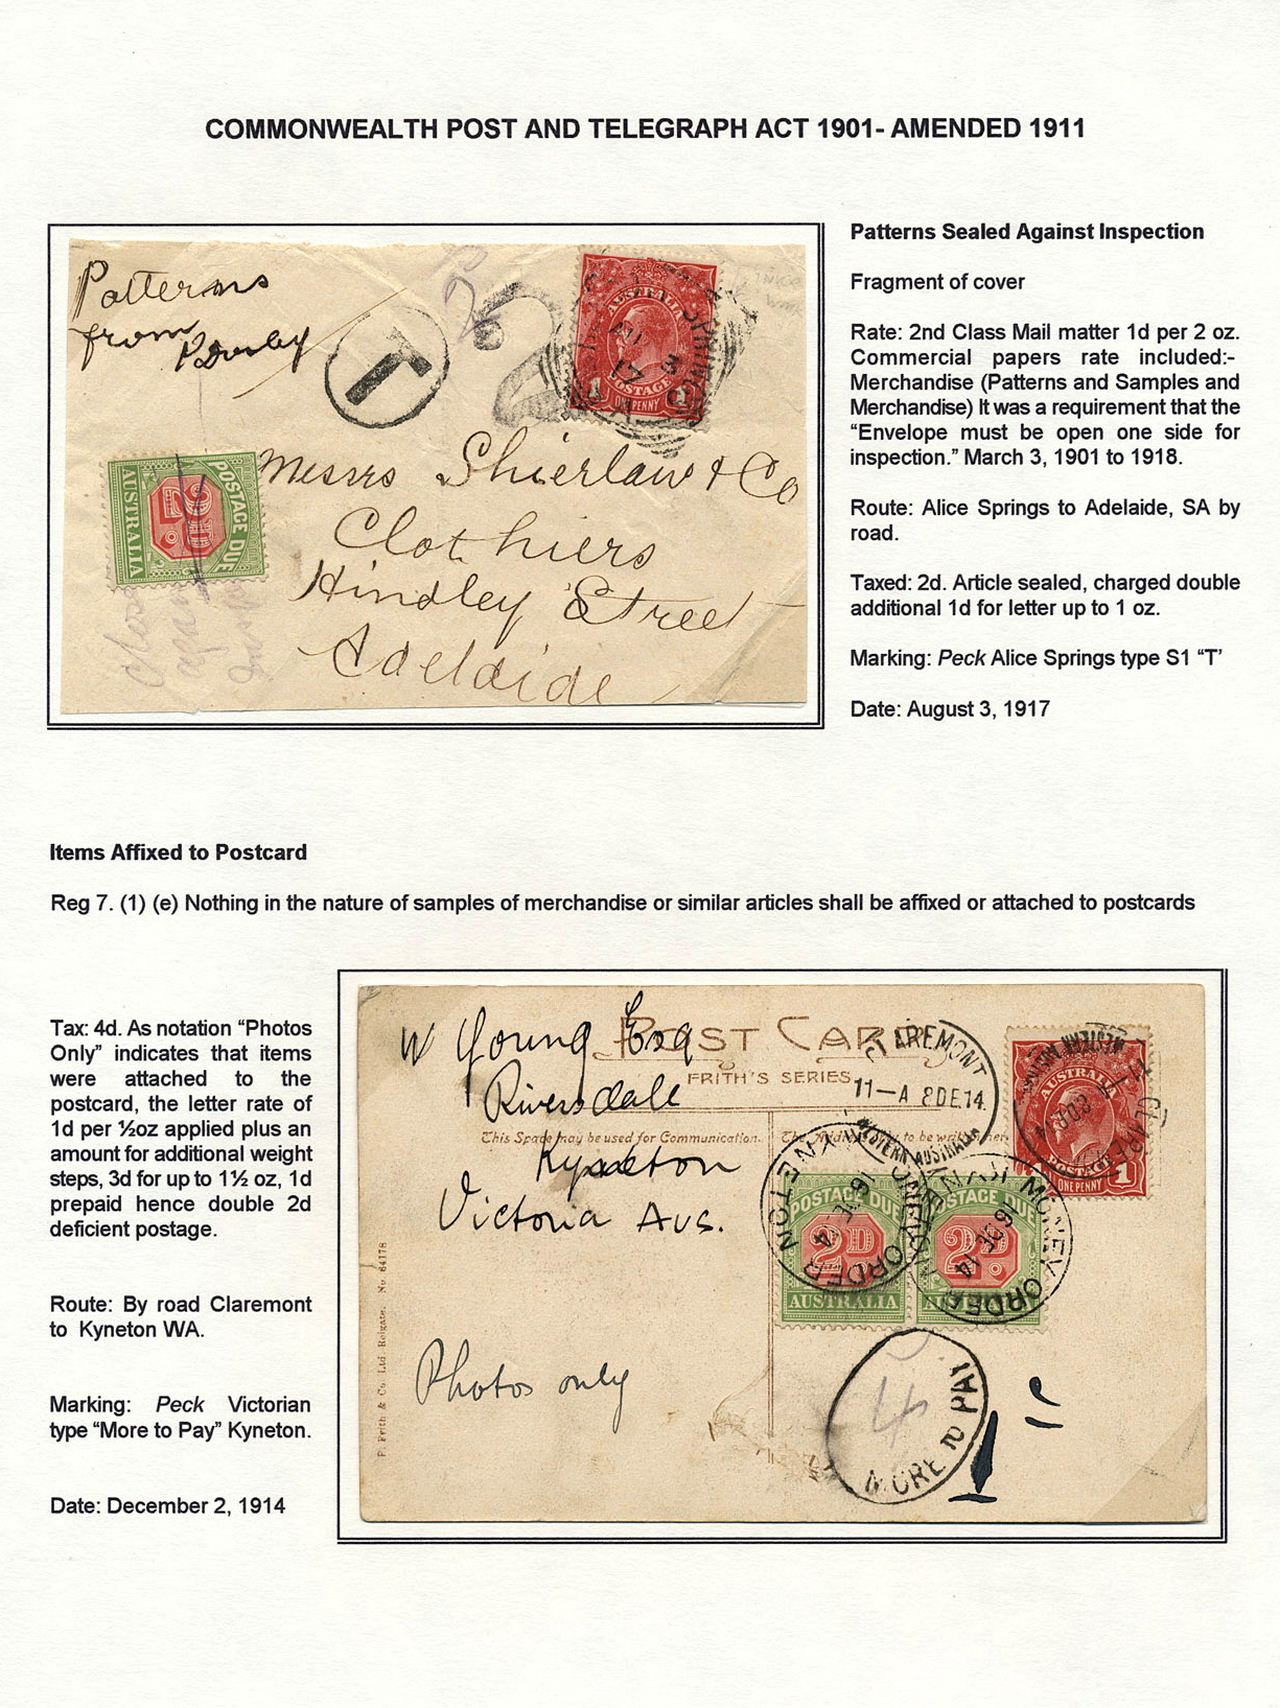 COMMONWEALTH POST AND TELEGRAPH ACT 1901- AMENDED 1911
Patterns
from
T
2
AUSTRALIA
POSTAGE
1 1
ONE PENNY
POSTAGE DUE
2D
AUSTRALIA
Messrs Shierlaw & Co
Clothiers
Hindley Street
Adelaide
Patterns Sealed Against Inspection
Fragment of cover
Rate: 2nd Class Mail matter 1d per 2 oz.
Commercial papers rate included:-
Merchandise (Patterns and Samples and
Merchandise) It was a requirement that the
“Envelope must be open one side for
inspection.” March 3, 1901 to 1918.
Route: Alice Springs to Adelaide, SA by
road.
Taxed: 2d. Article sealed, charged double
additional 1d for letter up to 1 oz.
Marking: Peck Alice Springs type S1 “T’
Date: August 3, 1917
Items Affixed to Postcard
Reg 7. (1) (e) Nothing in the nature of samples of merchandise or similar articles shall be affixed or attached to postcards
Tax: 4d. As notation “Photos
Only” indicates that items
were attached to the
postcard, the letter rate of
1d per ½oz applied plus an
amount for additional weight
steps, 3d for up to 1½ oz, 1d
prepaid hence double 2d
deficient postage.
Route: By road Claremont
to Kyneton WA.
Marking: Peck Victorian
type “More to Pay” Kyneton.
Date: December 2, 1914
POST CARD
FRITH'S SERIES
W Young Esq
Riversdale
Kyneton
Victoria Aus.
This Space may be used for Communication.
The Address only to be written here
CLAREMONT
11-A 8DE.14.
WESTERN AUSTRALIA
AUSTRALIA
POSTAGE
1
ONE PENNY
POSTAGE DUE
2D
AUSTRALIA
POSTAGE DUE
2D
AUSTRALIA
MONEY ORDER
KYNETON
16 DE 14
MONEY ORDER
KYNETON
16 DE 14
Photos only
4
MORE TO PAY
F. Frith & Co. Ltd. Reigate. No. 64178